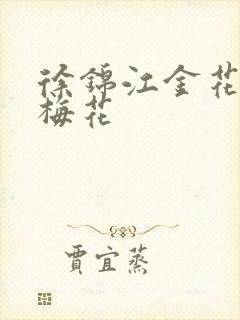 徐锦江金花
梅花
賈宜蒸